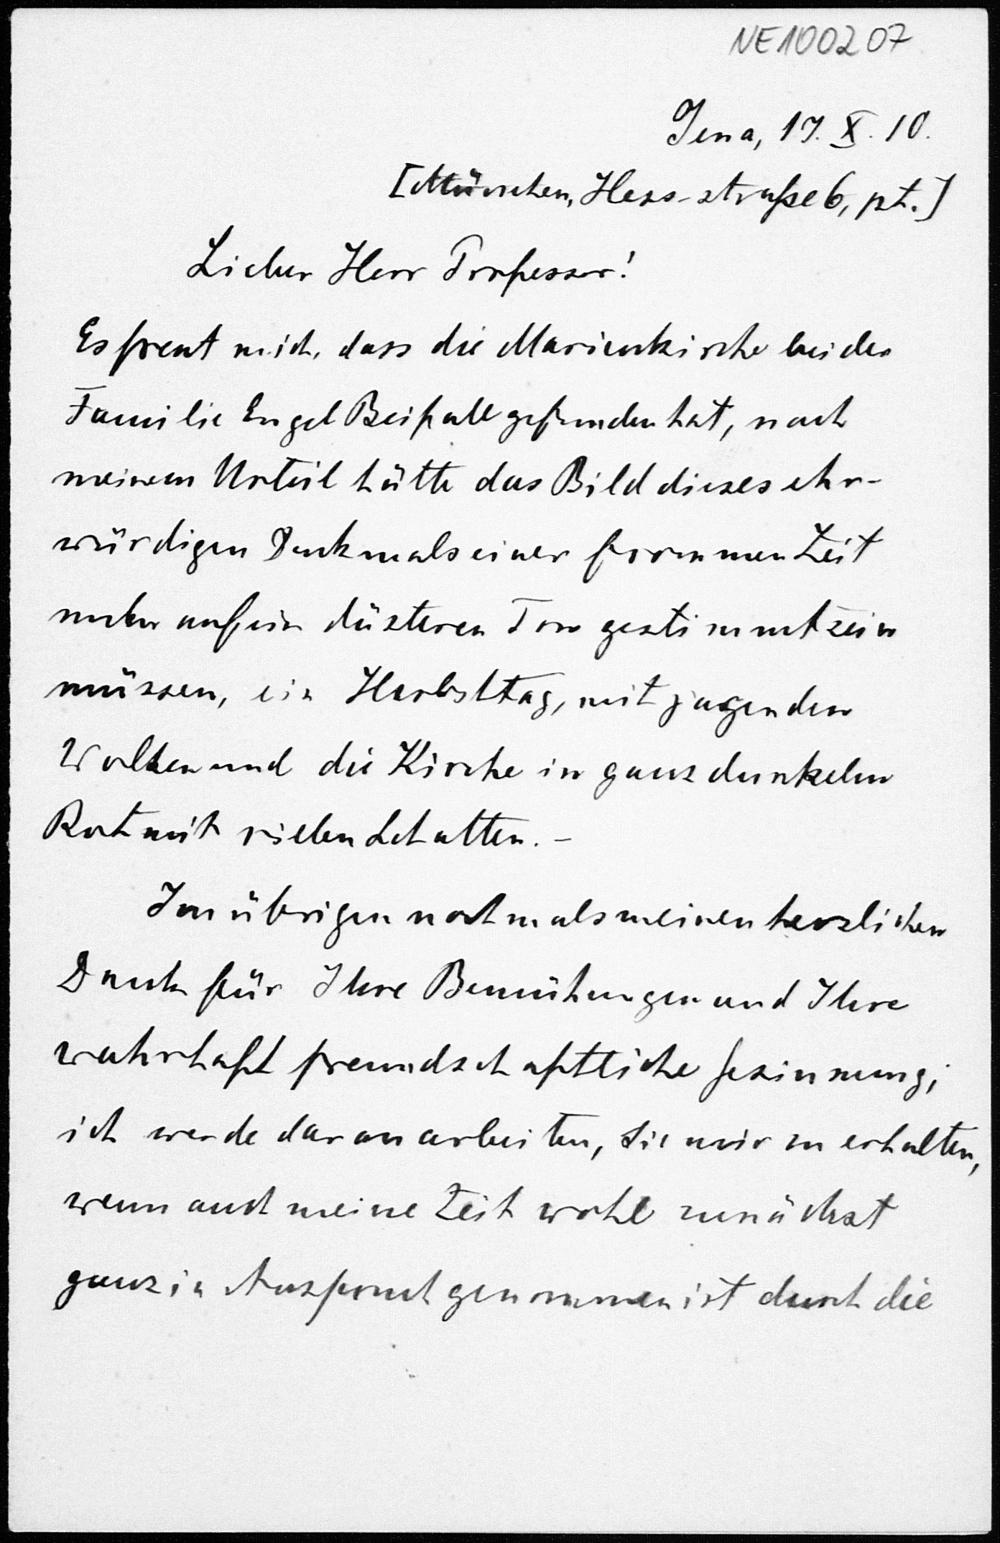 NE100207
Jena, 17. X. 10.
[München, Hess-straße 6, pt.]
Lieber Herr Professor!
Es freut mich, dass die Marienkirche bei der
Familie Engel Beifall gefunden hat, nach
meinem Urteil hätte das Bild dieses ehr-
würdigen Denkmals einer frommen Zeit
mehr auf ein düsteren Ton gestimmt sein
müssen, ein Herbsttag, mit jagenden
Wolken und die Kirche in ganz dunkelm
Rot mit vielen Schatten. -
Im übrigen nochmals meinen herzlichen
Dank für Ihre Bemühungen und Ihre
wahrhaft freundschaftliche Gesinnung;
ich werde daran arbeiten, Sie mir zu erhalten,
wenn auch meine Zeit wohl zunächst
ganz in Anspruch genommen ist durch die